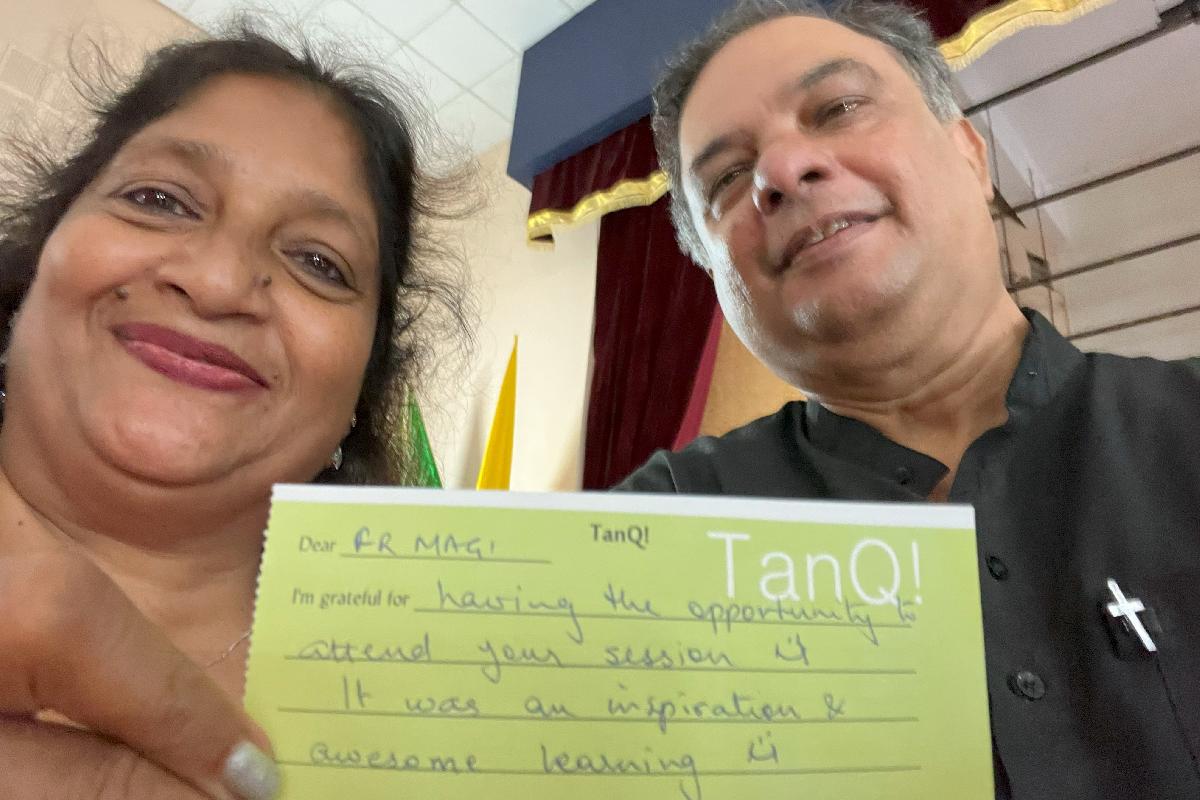 TanQ!
TanQ!
Dear FR MAGI
I'm grateful for having the opportunity to
attend your session
It was an inspiration &
awesome learning